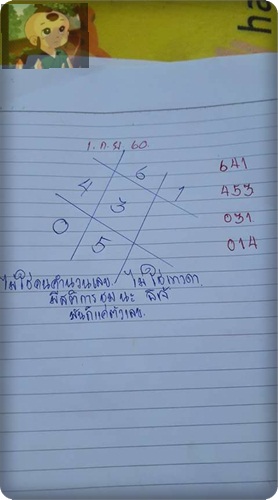 ha
1. ก. ย 60
6
641
4
1
453
3
0
031
5
014
ไม่ใช่คนคำนวนเลข. ไม่ใช่เทวดา.
มีสติการชมนะ
มันก็แค่ตัวเลข.